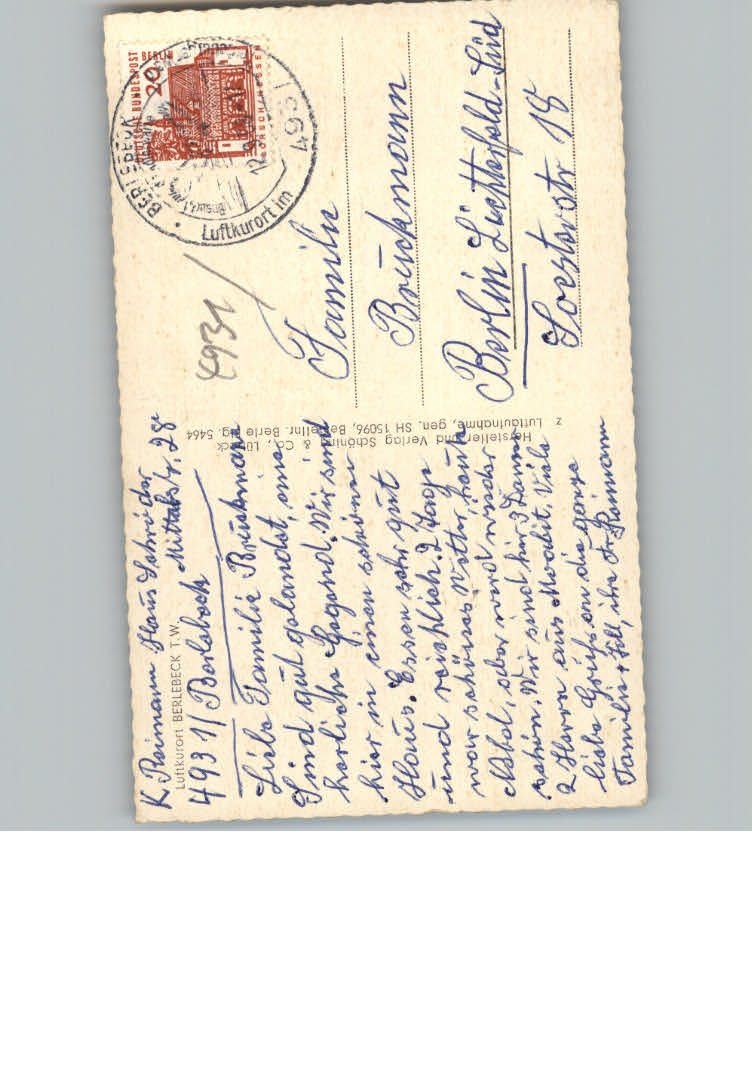 K Reimann Haus Schröder
Luftkurort BERLEBECK T.W.
Mittelstr. 28
4931/ Berlebeck
Liebe Familie Brückmann
Sind gut gelandet, eine
herliche Gegend. Wir sind
hier in einen schönen
Haus. Essen sehr gut
und reichlich. 2 Tage
war schönes Wetter, heute
Nebel, aber werd wieder
schön. Wir sind hier 3 Damen
2 Herrn aus Moabit. Viele
liebe Grüße an die ganze
Familie + Lill, ihre Fr Reimann
Hersteller und Verlag Schöning & Co., Lübeck
Luftaufnahme, gen. SH 15096, Bestellnr. Berle Lg. 5464
z
DEUTSCHE BUNDESPOST BERLIN
20
LORSCH/HESSEN
BERLEBECK
Luftkurort im
4931
4931
Familie
Brückmann
Berlin Lichterfeld-Süd
Soester str 18